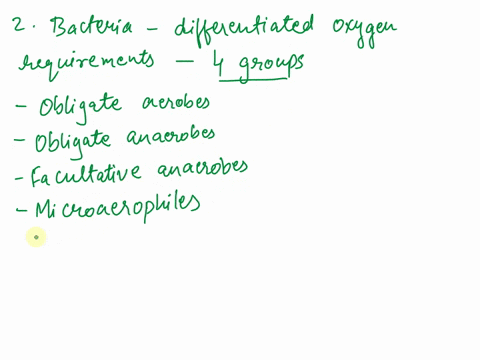 2. Bacteria - differentiated oxygen
requirements - 4 groups
- Obligate aerobes
- Obligate anaerobes
- Facultative anaerobes
- Microaerophiles